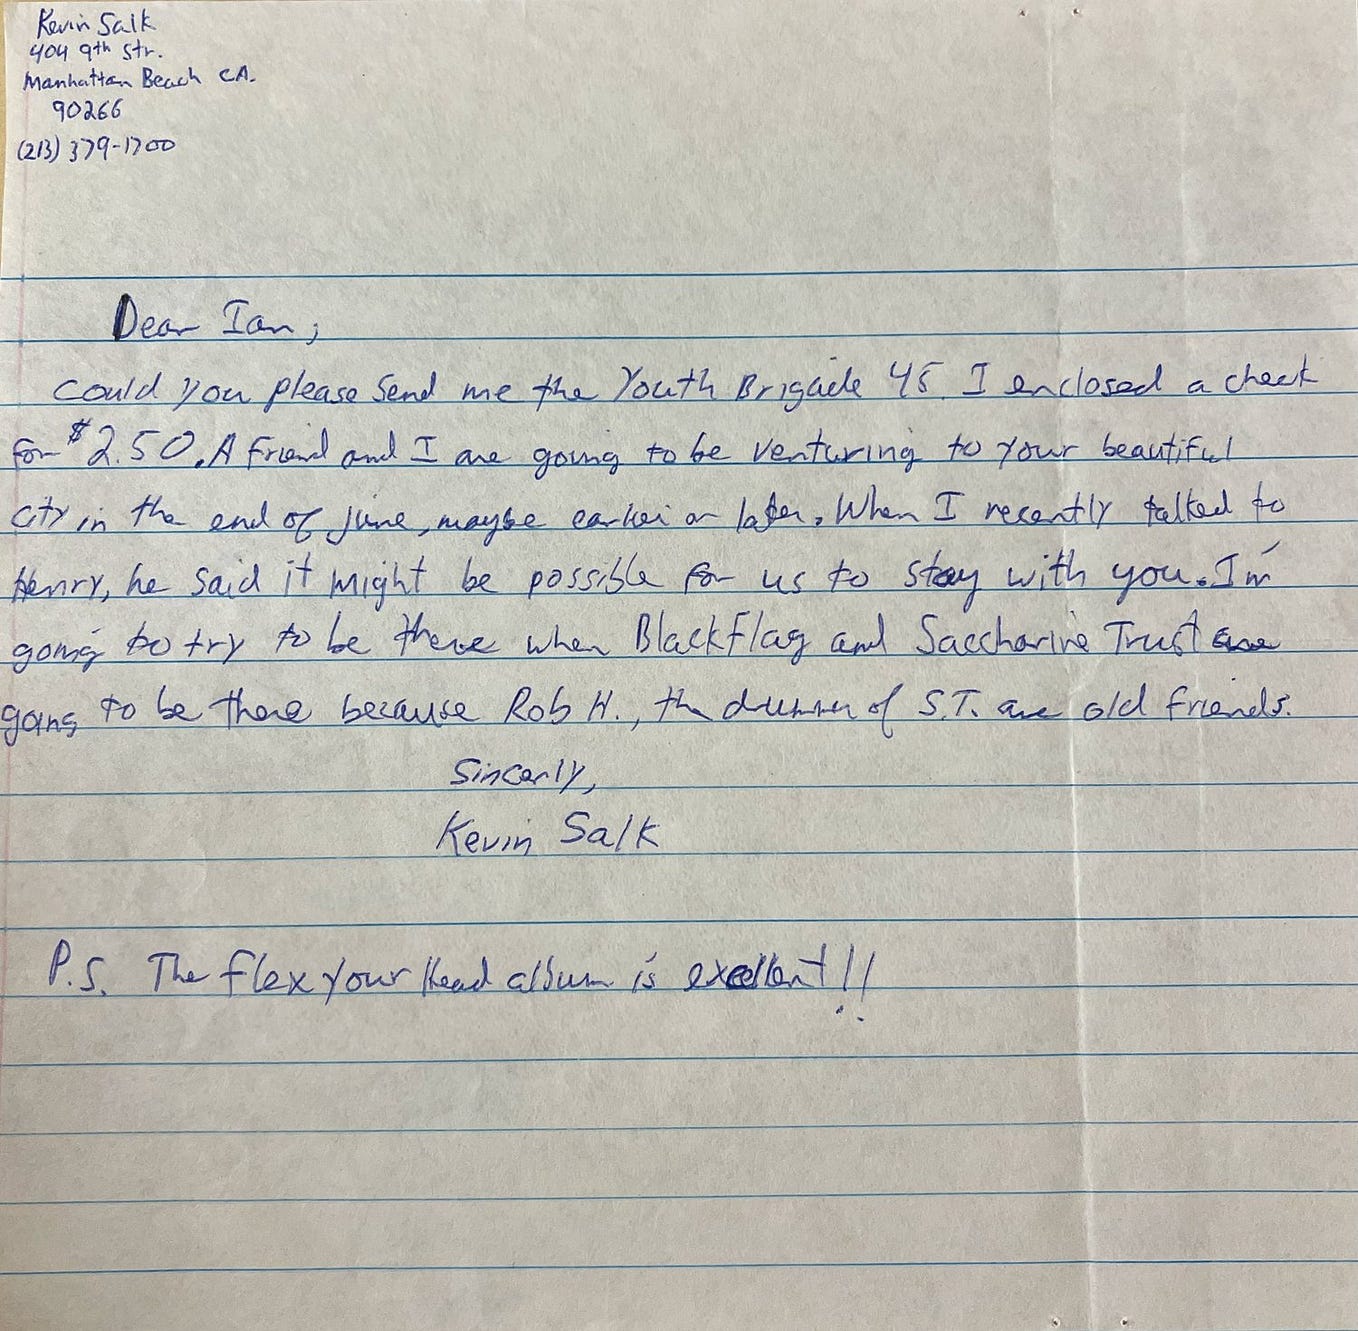 Kevin Salk
404 9th Str.
Manhattan Beach CA.
90266
(213) 379-1700
Dear Ian,
Could you please send me the Youth Brigade 45. I enclosed a check
for $2.50. A friend and I are going to be venturing to your beautiful
city in the end of june, maybe earlier or later. When I recently talked to
Henry, he said it might be possible for us to stay with you. I'm
going to try to be there when Black Flag and Saccharine Trust are
going to be there because Rob H., the drummer of S.T. are old friends.
Sincerly,
Kevin Salk
P.S. The flex your Head album is excellent!!